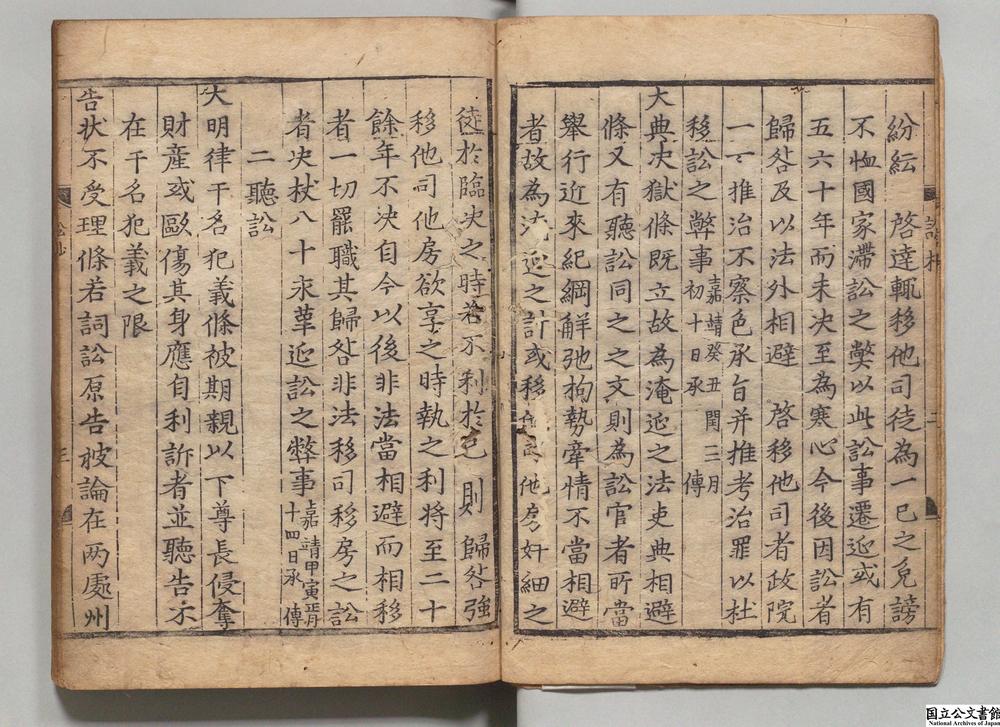 紛紜 啓達輒移他司徒為一己之免謗
不恤國家滯訟之獘以此訟事遷延或有
五六十年而未决至為寒心今後因訟者
歸咎及以法外相避 啓移他司者政院
一一推治不察色承旨并推考治罪以杜
移訟之弊事嘉靖癸丑閏三月初十日承 傳
大典决獄條既立故為淹延之法吏典相避
條又有聽訟同之之文則為訟官者所當
舉行近來紀綱解弛拘勢牽情不當相避
者故為沈延之計或移他司他房奸細之
徒於臨决之時若不利於己則歸咎強
移他司他房欲享之時執之利將至二十
餘年不决自今以後非法當相避而相移
者一切罷職其歸咎非法移司移房之訟
者决杖八十永革延訟之弊事嘉靖甲寅正月十四日承 傳
二聽訟
大明律干名犯義條被期親以下尊長侵奪
財產或毆傷其身應自利訴者並聽告不
在干名犯義之限
告状不受理條若詞訟原告被論在两處州
二
三
国立公文書館
National Archives of Japan